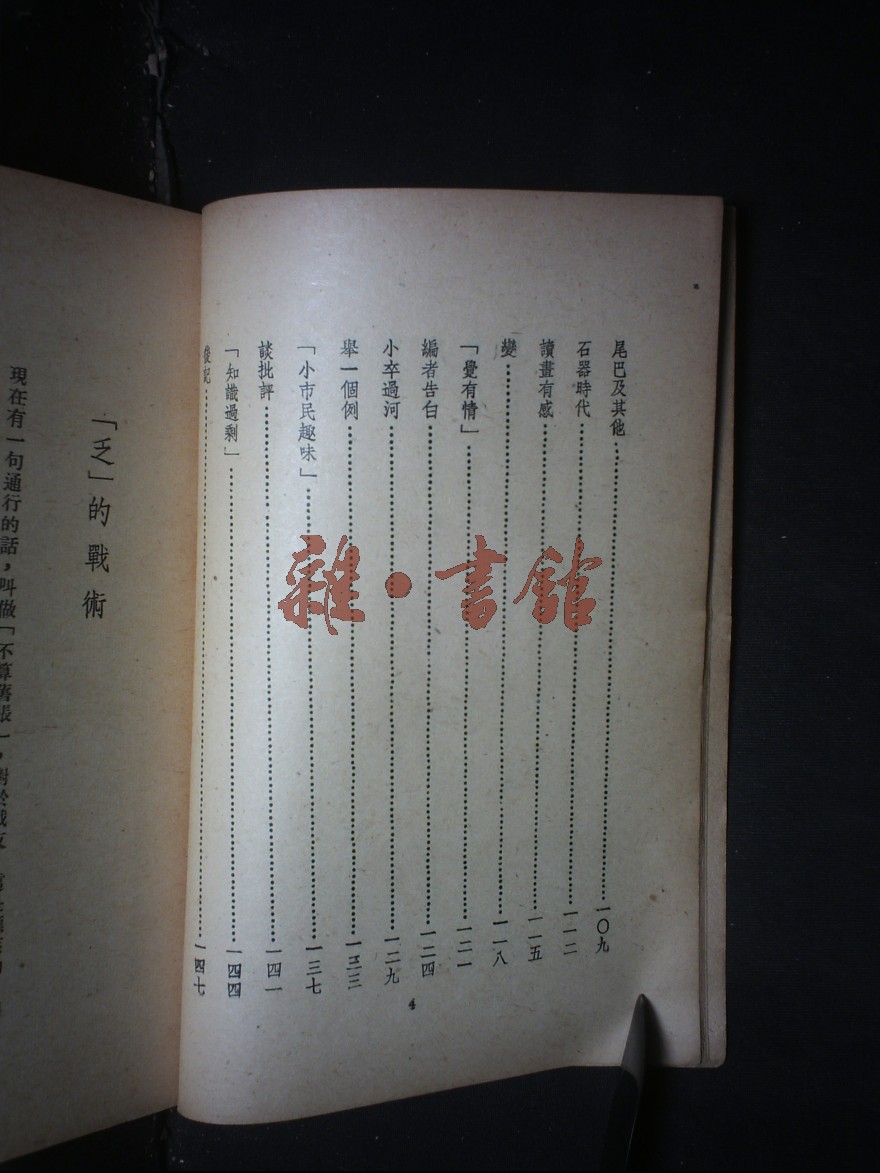 尾巴及其他……一〇九
石器時代……一一二
讀畫有感……一一五
變……一一八
「覺有情」……一二一
編者告白……一二四
小卒過河……一二九
舉一個例……一三三
「小市民趣味」……一三七
談批評……一四一
「知識過剩」……一四四
後記……一四七
4
雜·書館
「乏」的戰術
現在有一句通行的話，叫做「不算舊張」，對於戰友